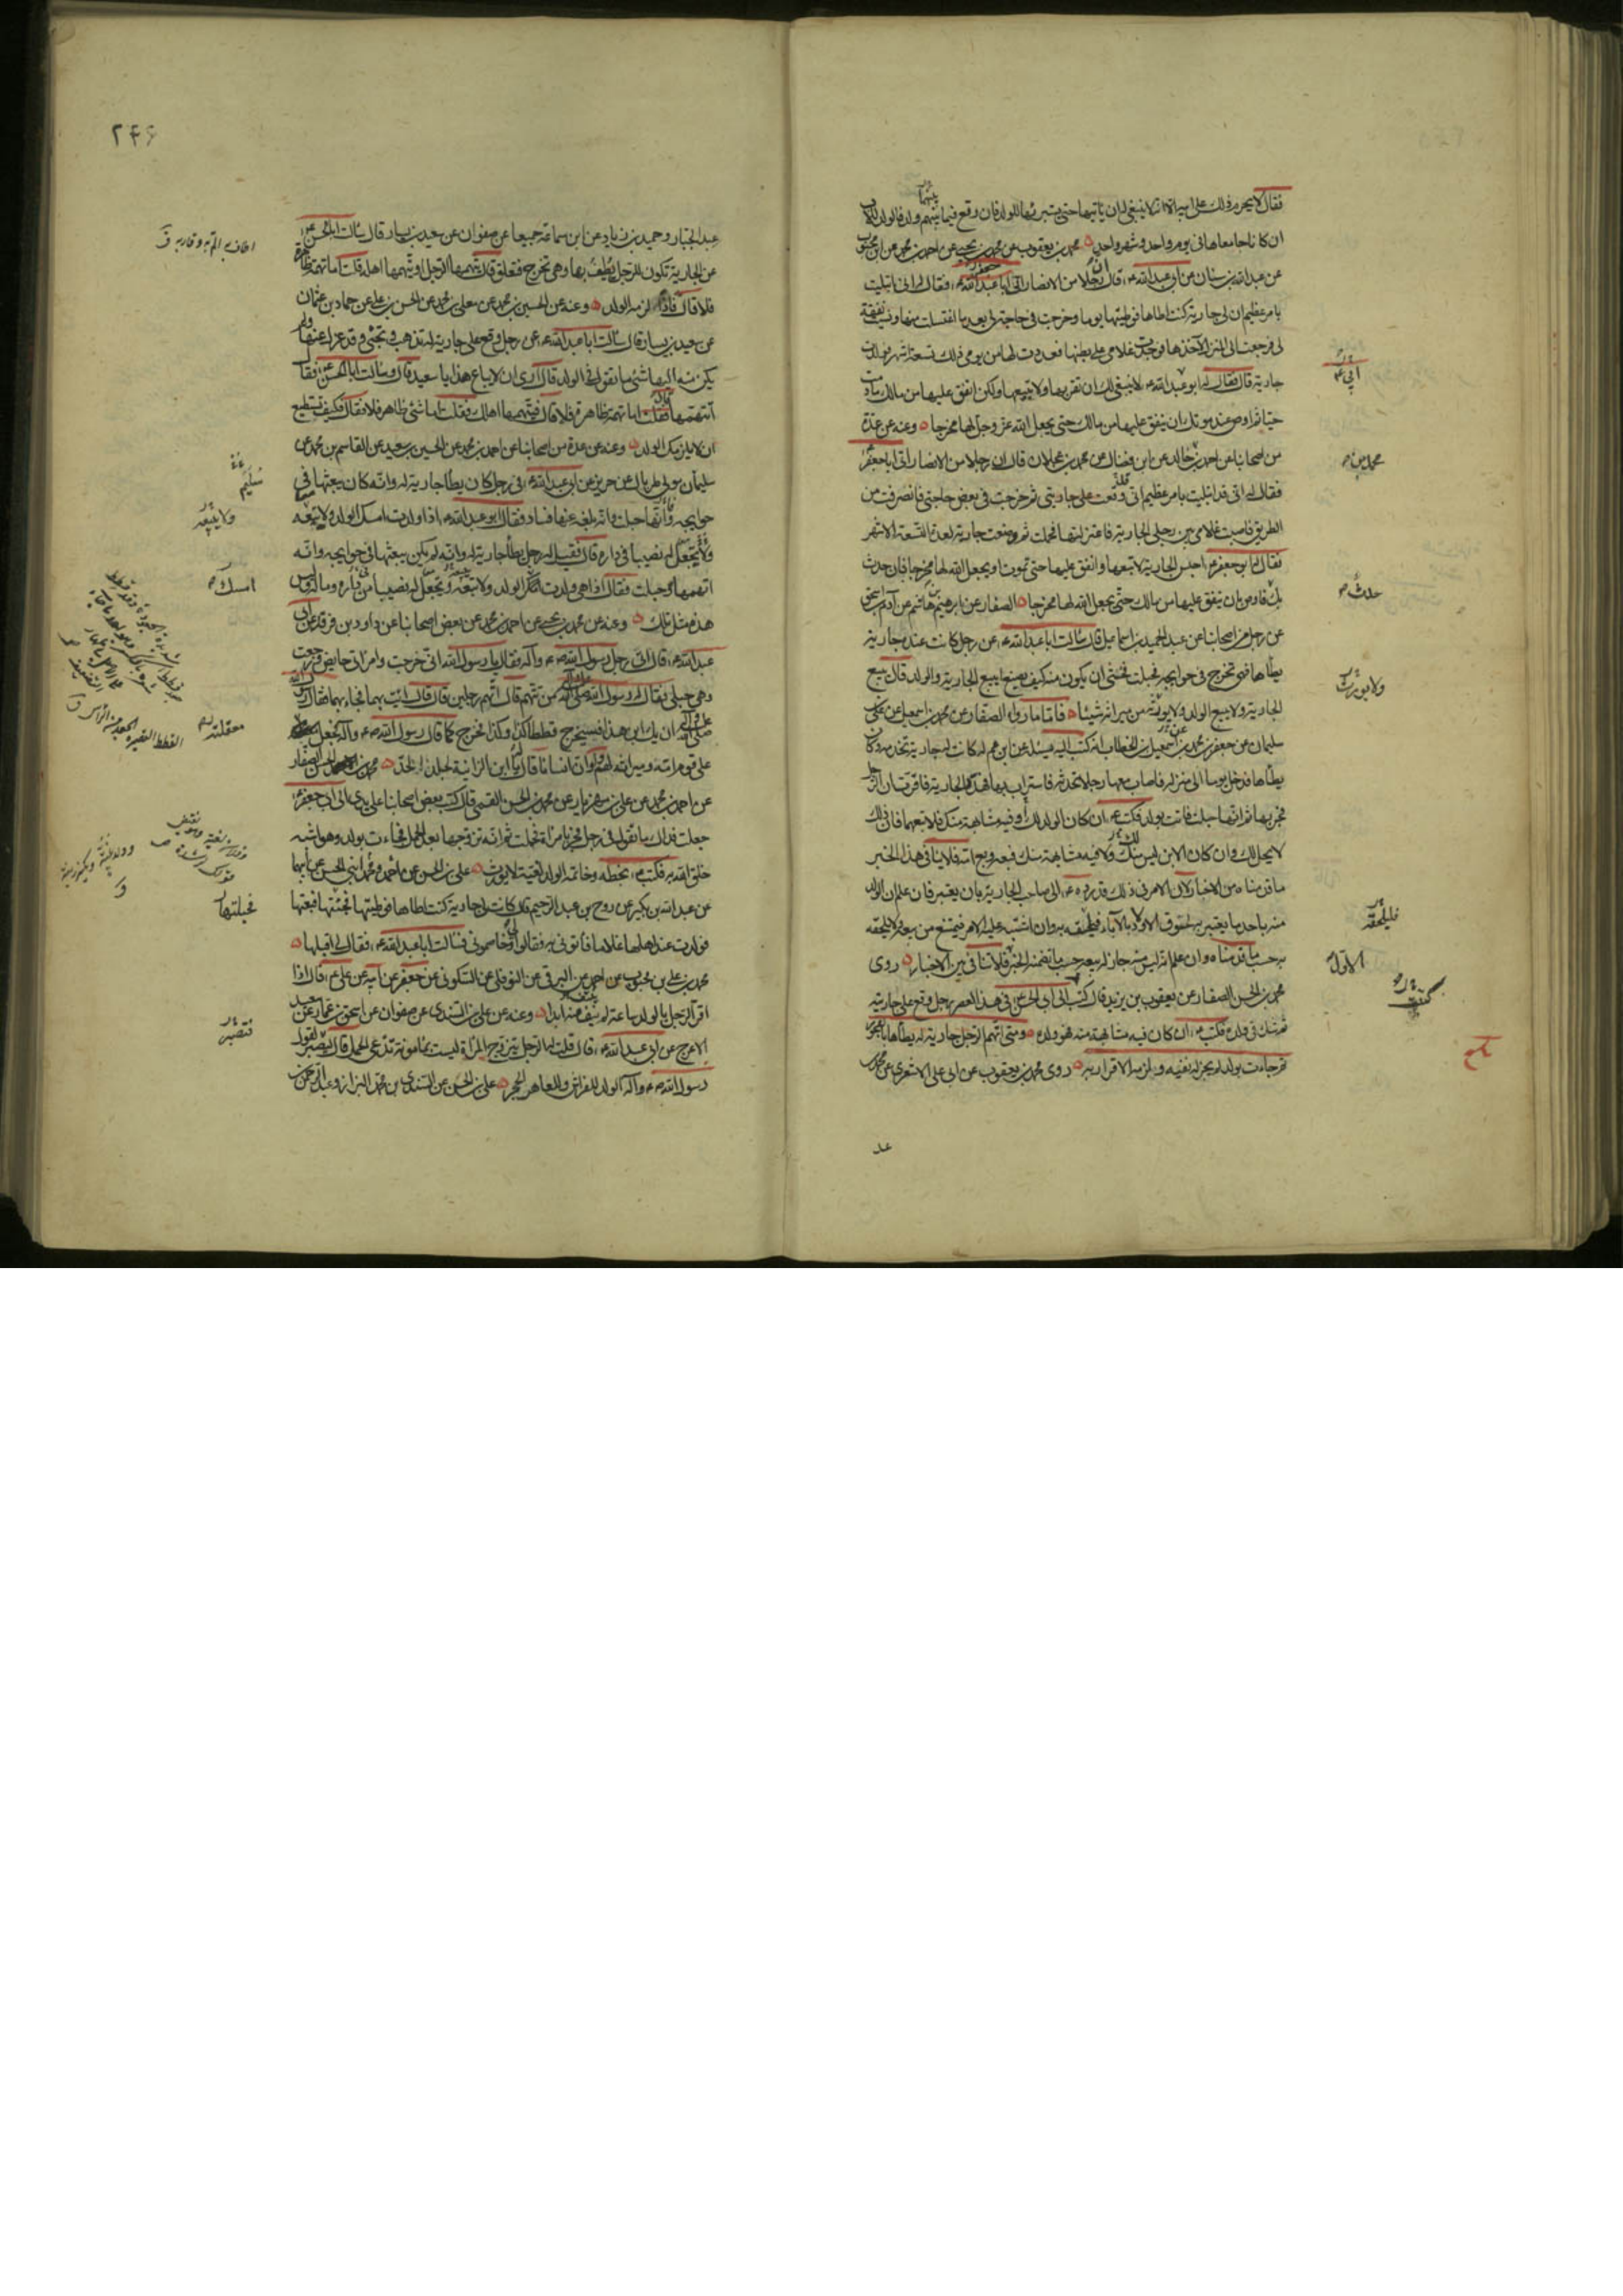 فقال لا يحرم ذلك على ابيه الا انه لا ينبغي له ان ياتيها حتى يستبرئها للولد فان وقع فيما بينهم ولد فالولد للاب
ان كانا جامعاها في يوم واحد وشهر واحد محمد بن يعقوب عن محمد بن يحيى عن احمد بن محمد عن ابن محبوب
عن عبد الله بن سنان عن ابي عبد الله ع قال ان رجلا من الانصار اتى ابا عبد الله ع فقال له اني ابتليت
بامر عظيم ان لي جارية كنت اطاها فوطيتها يوما وخرجت في حاجة لي بعد ما اغتسلت منها ونسيت نفقة
لي فرجعت الى المنزل لآخذها فوجدت غلامي على بطنها فعددت لها من يومي ذلك تسعة اشهر فولدت
جارية قال فقال له ابو عبد الله ع لا ينبغي لك ان تقربها ولا تبيعها ولكن انفق عليها من مالك ما دمت
حيا ثم اوص عند موتك ان ينفق عليها من مالك حتى يجعل الله عز وجل لها مخرجا وعنه عن عدة
من اصحابنا عن احمد بن خالد عن ابن فضال عن محمد بن عجلان قال ان رجلا من الانصار اتى ابا جعفر ع
فقال له اني قد ابتليت بامر عظيم اني وقعت على جاريتي ثم خرجت في بعض حاجتي فانصرفت من
الطريق فاصبت غلامي بين رجلي الجارية فاعتزلتها فحملت ثم وضعت جارية لعدة التسعة الاشهر
فقال له ابو جعفر ع احبس الجارية لا تبعها وانفق عليها حتى تموت او يجعل الله لها مخرجا فان حدث
بك فاوص بان ينفق عليها من مالك حتى يجعل الله لها مخرجا الصفار عن ابرهيم بن هاشم عن آدم بن اسحق
عن رجل من اصحابنا عن عبد الحميد بن اسماعيل قال سالت ابا عبد الله ع عن رجل كانت عنده جارية
يطأها فهي تخرج في حوايجه فحبلت فخشي ان لا يكون منه كيف يصنع ايبيع الجارية والولد قال يبيع
الجارية ولا يبيع الولد ولا يورثه من ميراثه شيئا فاما ما رواه الصفار عن محمد بن اسمعيل عن علي بن
سليمان عن جعفر بن محمد بن اسمعيل بن الخطاب انه كتب اليه يسئله عن ابن عم له كانت له جارية تخدمه وكان
يطأها فدخل يوما الى منزله فاصاب معها رجلا تحدثه فاستراب بها فهدد الجارية فاقرت ان الرجل
فجر بها ثم انها حبلت فاتت بولد فكتب ع ان كان الولد لك او فيه مشابهة منك فلا تبعهما فان ذلك
لا يحل لك وان كان الابن ليس منك ولا فيه مشابهة منك فبعه وبع امه فلا ينافي هذا الخبر
ما قدمناه من الاخبار لان الامر في ذلك قد رده ع الى صاحب الجارية بان يعتبر فان علم ان الولد
منه باحد ما يعتبر به لحوق الاولاد بالآباء فليلحقه به وان اشتبه عليه الامر فيمتنع من بيعه ولا يلحقه
به حسب ما قدمناه وان علم انه ليس منه جاز له بيعه حسب ما تضمنه الخبر فلا تنافي بين الاخبار روى
محمد بن الحسن الصفار عن يعقوب بن يزيد قال كتبت الى ابي الحسن ع في هذا العصر رجل وقع على جاريته
ثم شك في ولده فكتب ع ان كان فيه مشابهة منه فهو ولده ومتى اتهم الرجل جارية له يطأها بالفجور
ثم جاءت بولد لم يجز له نفيه ولزمه الاقرار به روى محمد بن يعقوب عن ابي علي الاشعري عن محمد بن
عبد
محمد بن
حدث
ولا يورثه
فليلحقه
الاول
كتبت
٢٤٦
عبد الجبار وحميد بن زياد عن ابن سماعة جميعا عن صفوان عن سعيد بن يسار قال سالت ابا الحسن ع
عن الجارية تكون للرجل يطيف بها وهي تخرج فتعلق قال يتهمها الرجل او يتهمها اهله قلت اما تهمة ظاهرة
فلا قال فاذا لزمه الولد وعنه عن الحسين بن محمد عن معلى بن محمد عن الحسن بن علي عن حماد بن عثمان
عن سعيد بن يسار قال سالت ابا عبد الله ع عن رجل وقع على جارية له تذهب وتجئ وقد عزل عنها ولم
يكن منه اليها شئ ما تقول في الولد قال ارى ان لا يباع هذا يا سعيد قال وسالت ابا الحسن ع فقال
اتتهمها فقلت اما تهمة ظاهرة فلا قال فيتهمها اهلك فقلت اما شئ ظاهر فلا فقال فكيف تستطيع
ان لا يلزمك الولد وعنه عن عدة من اصحابنا عن احمد بن محمد عن الحسين بن سعيد عن القاسم بن محمد عن
سليمان مولى طربال عن حريز عن ابي عبد الله ع في رجل كان يطأ جارية له وانه كان يبعثها في
حوايجه وانها حبلت وانه بلغه عنها فساد فقال ابو عبد الله ع اذا ولدت امسك الولد ولا يبيعه
ويجعل له نصيبا في داره قال فقيل له رجل يطأ جارية له وانه لم يكن يبعثها في حوايجه وانه
اتهمها وحبلت فقال اذا هي ولدت امسك الولد ولا يبيعه ويجعل له نصيبا من داره وماله وليس
هذه مثل تلك وعنه عن محمد بن يحيى عن احمد بن محمد عن بعض اصحابنا عن داود بن فرقد عن ابي
عبد الله ع قال اتى رجل رسول الله ص وآله فقال يا رسول الله اني خرجت وامراتي حايض فرجعت
وهي حبلى فقال له رسول الله صلى الله عليه وآله من تتهم قال اتهم رجلين قال فقال ائت بهما فجاء بهما فقال رسول الله
صلى الله عليه وآله ان يك ابن هذا فسيخرج قططا كذا وكذا فخرج كما قال رسول الله ص وآله فجعل معقلته
على قوم امه وميراثه لهم ولو ان انسانا قال له يا ابن الزانية لجلد الحد محمد بن الحسن الصفار
عن احمد بن محمد عن علي بن مهزيار عن محمد بن الحسن القمي قال كتب بعض اصحابنا على يدي الى ابي جعفر ع
جعلت فداك ما تقول في رجل فجر بامراة فحملت ثم انه تزوجها بعد الحمل فجاءت بولد وهو اشبه
خلق الله به فكتب ع بخطه وخاتمه الولد لغية لا يورث علي بن الحسن عن احمد ومحمد ابني الحسن عن ابيهما
عن عبد الله بن بكير عن روح بن عبد الرحيم قال كانت لي جارية كنت اطاها فوطيتها فجئتها فبعتها
فولدت عند اهلها غلاما فاتوني به فقالوا لي وخاصموني فسالت ابا عبد الله ع فقال لي اقبلها
محمد بن علي بن محبوب عن احمد عن البرقي عن النوفلي عن السكوني عن جعفر عن ابيه عن علي ع قال اذا
اقر الرجل بالولد ساعة لم ينف عنه ابدا وعنه عن علي بن السندي عن صفوان عن اسحق بن عمار عن سعيد
الاعرج عن ابي عبد الله ع قال قلت له الرجل يتزوج المراة ليست بمامونة تدعي الحمل قال ليصبر لقول
رسول الله ص وآله الولد للفراش وللعاهر الحجر علي بن الحسن عن السندي بن محمد البزاز وعبد الرحمن بن
سليم
ولا يبيعه
امسك
معقلته